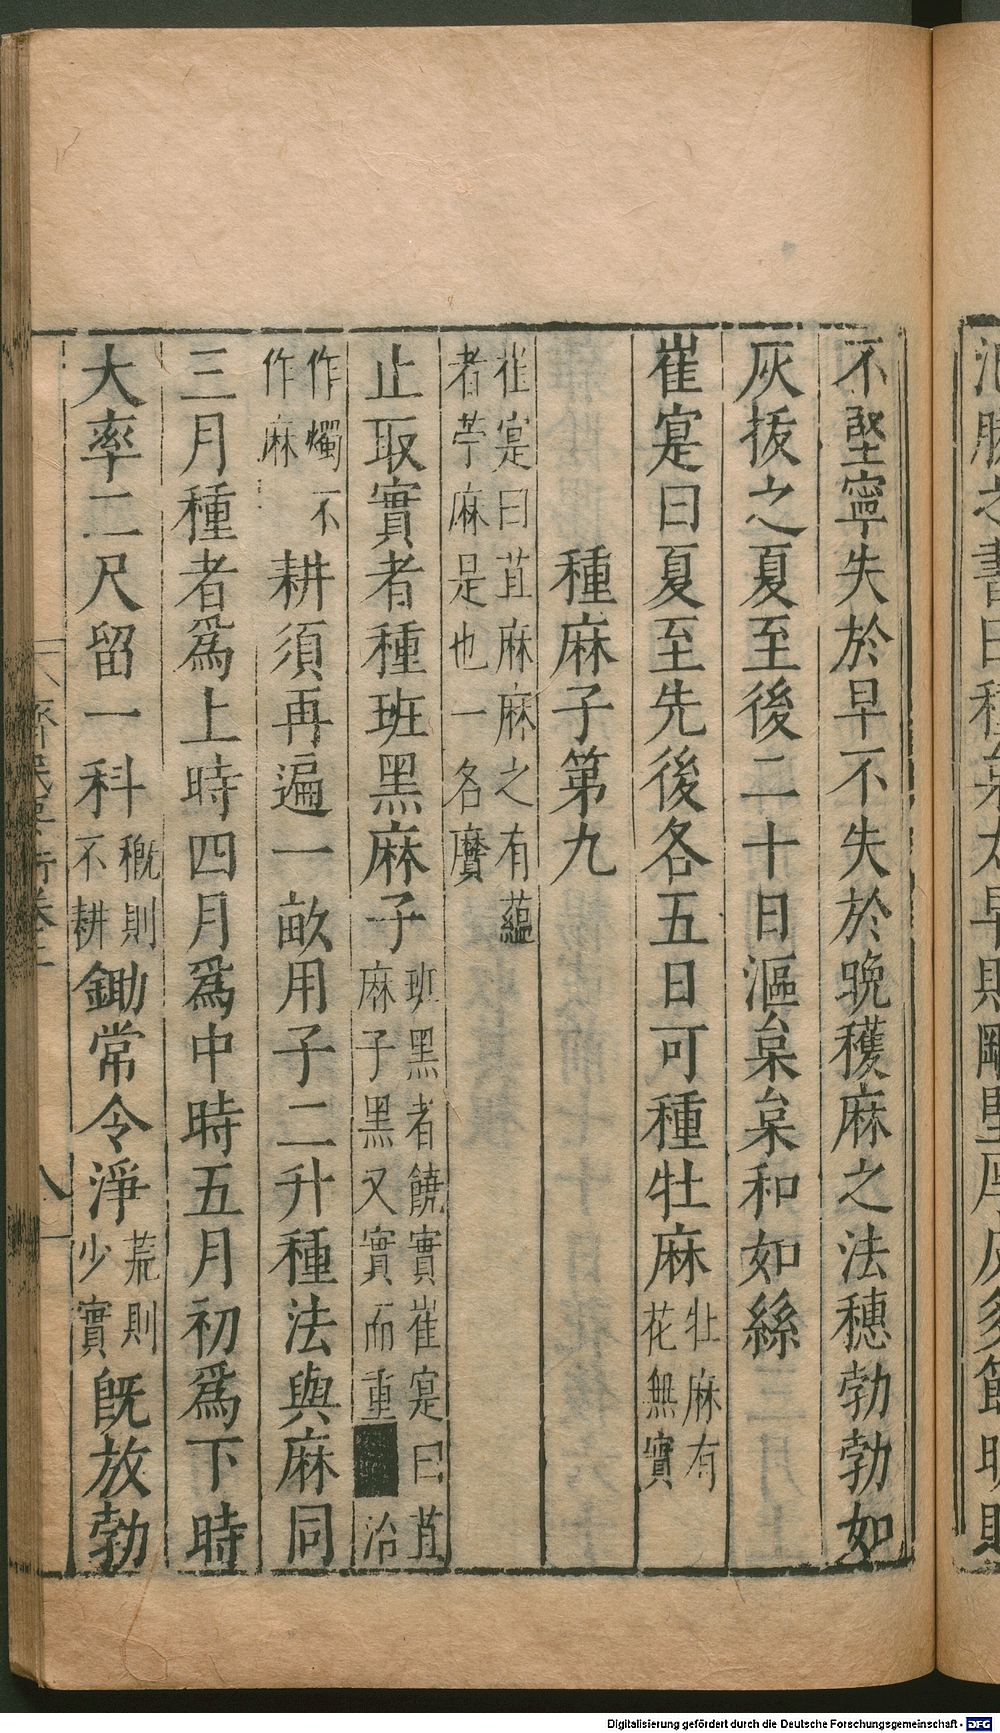 不堅寧失於早不失於晚穫麻之法穗勃勃如
灰拔之夏至後二十日漚枲枲和如絲
崔寔曰夏至先後各五日可種牡麻牡麻有花無實
種麻子第九
崔寔曰苴麻麻之有蘊者苧麻是也一名黂
止取實者種班黑麻子班黑者饒實崔寔曰苴麻子黑又實而重治
作燭不作麻耕須再遍一畝用子二升種法與麻同
三月種者為上時四月為中時五月初為下時
大率二尺留一科穊則不耕鋤常令淨荒則少實既放勃
齊民要術卷二
八
Digitalisierung gefördert durch die Deutsche Forschungsgemeinschaft - DFG